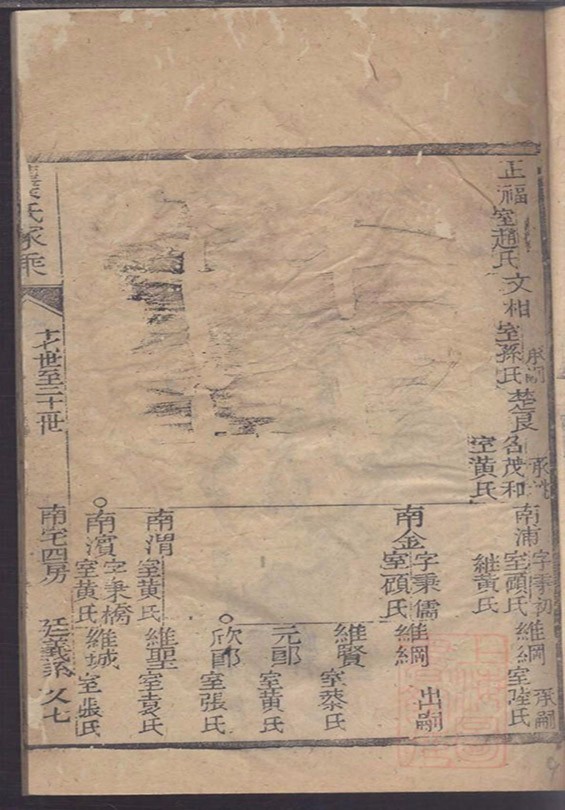 正福室趙氏
文相室孫氏
承嗣
楚良
名茂和
室黃氏
南浦
字秉初
室顧氏
繼黃氏
維綱
室陸氏
承嗣
南金
字秉儒
室顧氏
維綱
出嗣
維賢
室蔡氏
元郎
室黃氏
欣郎
室張氏
南渭
室黃氏
維聖
室袁氏
南濱
字秉橋
室黃氏
維城
室張氏
氏家乘
十七世至二十一世
南宅四房
廷義派